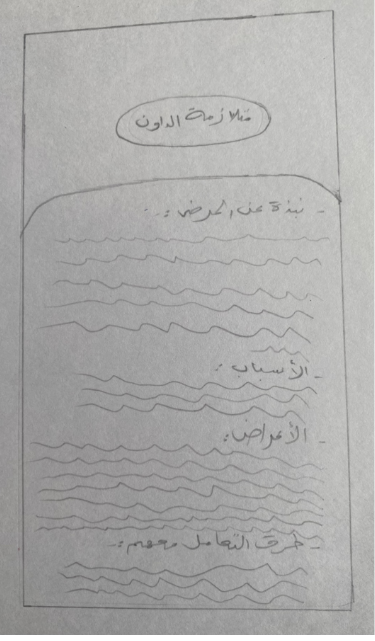 متلازمة الداون
- نبذة عن المرض :-
- الأسباب :
- الأعراض :
- طرق التعامل معهم :-